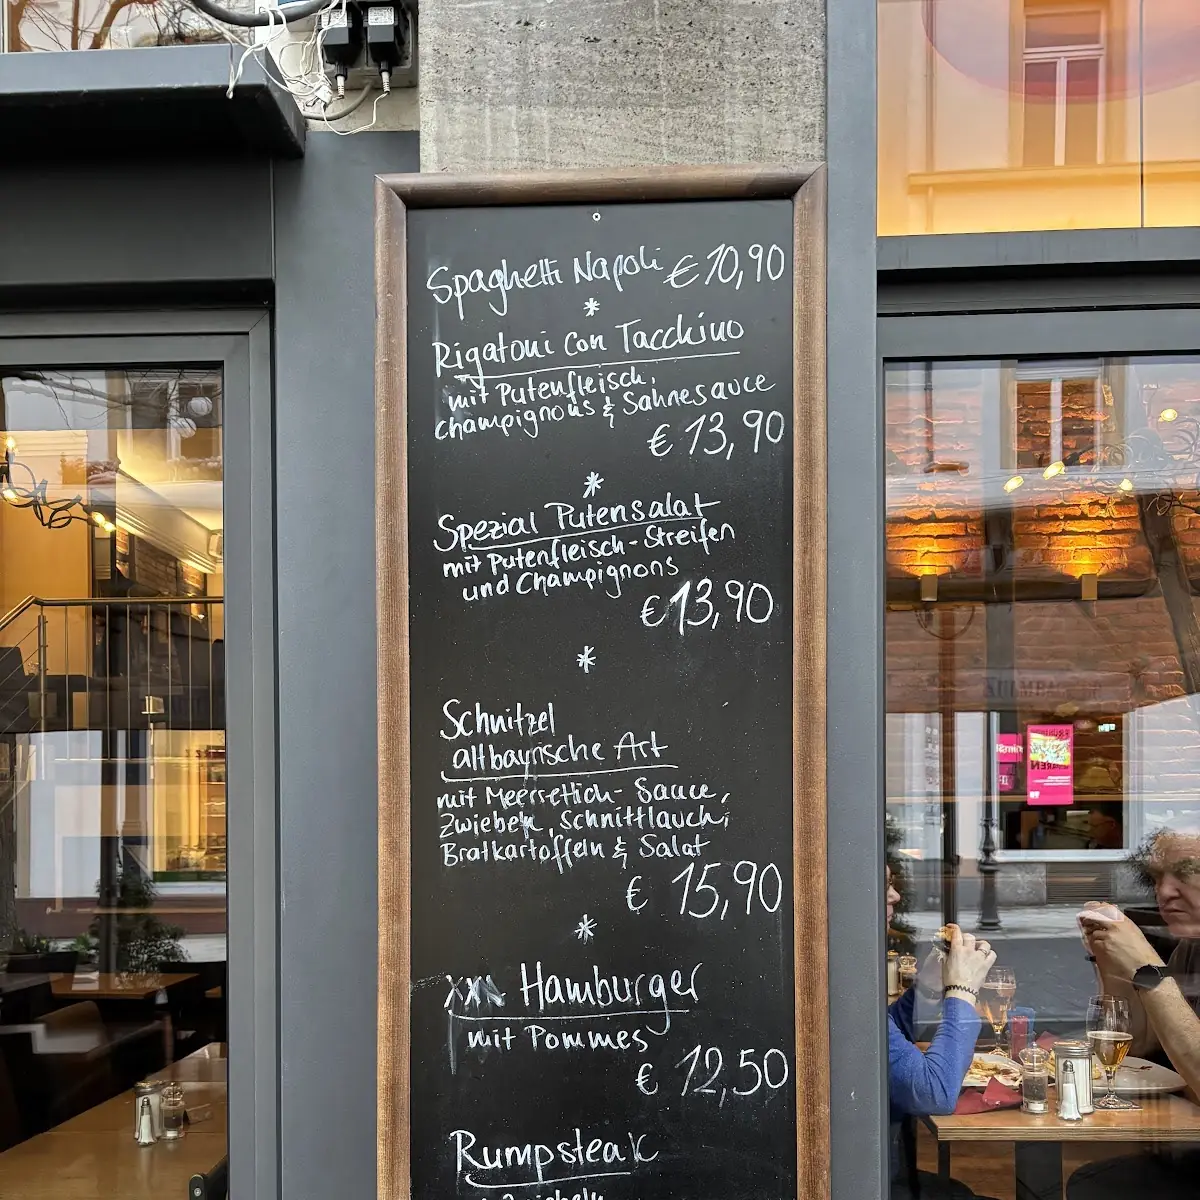 Spaghetti Napoli €10,90
*
Rigatoni con Tacchino
mit Putenfleisch,
champignons & Sahnesauce
€ 13,90
*
Spezial Putensalat
mit Putenfleisch-Streifen
und Champignons
€ 13,90
*
Schnitzel
altbayrische Art
mit Meerrettich-Sauce,
Zwiebeln, Schnittlauch,
Bratkartoffeln & Salat
€ 15,90
*
xxL Hamburger
mit Pommes
€ 12,50
Rumpsteak